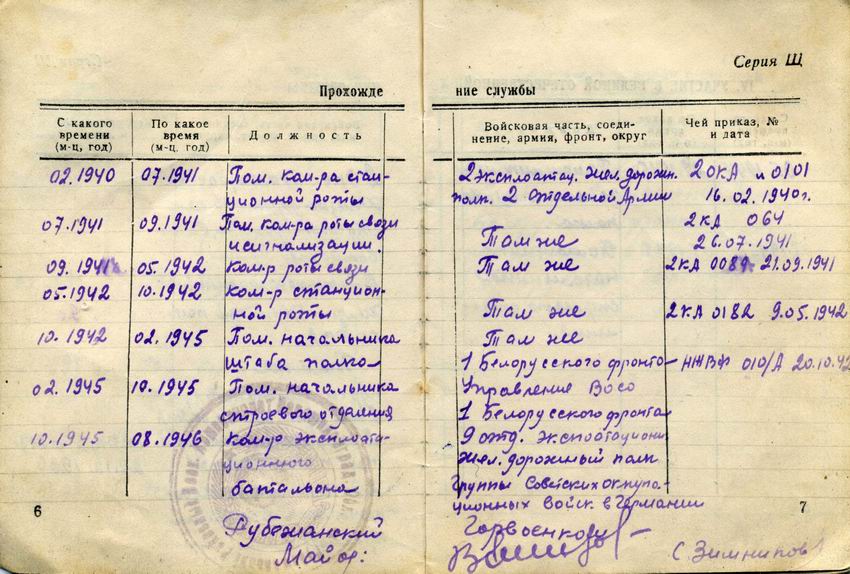 Серия Щ
Прохожде
ние службы
С какого времени (м-ц, год)
По какое время (м-ц, год)
Должность
Войсковая часть, соеди-
нение, армия, фронт, округ
Чей приказ, №
и дата
02.1940 07.1941 Пом. ком-ра стан- 2 эксплоатац. жел. дорожн. 2 ОКА н 0101
ционной роты полк. 2 Отдельной Армии 16.02.1940г.
07.1941 09.1941 Пом. ком-ра роты связи 2КА 064
и сигнализации. Там же 26.07.1941
09.1941 05.1942 Ком-р роты связи Там же 2КА 0089 21.09.1941
05.1942 10.1942 ком-р станцион-
ной роты Там же 2КА 0182 9.05.1942
10.1942 02.1945 Пом. начальника Там же
штаба полка 1 Белорусского фронта НЖВФ 010/А 20.10.42
02.1945 10.1945 Пом. начальника Управление Восо
строевого отделения 1 Белорусского фронта
10.1945 08.1946 Ком-р эксплоата- 9 отд. эксплоатационн
ционного жел. дорожный полк
батальона Группы Советских оккупа-
ционных войск в Германии
6
7
Рубежанский
Майор:
Горвоенком
С. Зимников